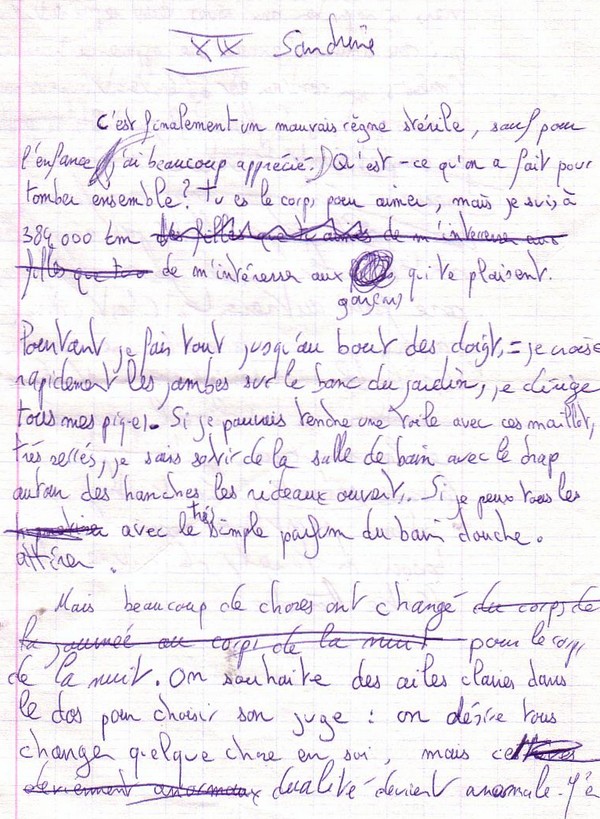 XIX Sandrine
C'est finalement un mauvais règne stérile, sauf pour
l'enfance (j'ai beaucoup apprécié.) Qu'est-ce qu'on a fait pour
tomber ensemble? Tu es le corps pour aimer, mais je suis à
384 000 km de m'interesser aux
filles que tu de m'intéresser aux qui te plaisent.
garçons
Pourtant je fais tout jusqu'au bout des doigts, = je croise
rapidement les jambes sur le banc du jardin, je dirige
tous mes pig-es. Si je pouvais tendre une toile avec ces maillots,
très serrés, je sais sortir de la salle de bain avec le drap
autour des hanches les rideaux ouverts. Si je peux tous les
avec le très simple parfum du bain douche.
attirer.
Mais beaucoup de choses ont changé du corps de
la journée au corps de la nuit pour le corps
de la nuit. On souhaite des ailes claires dans
le dos pour choisir son juge : on désire tous
changer quelque chose en soi, mais cette
deviennent anormaux dualité devient anormale. J'é